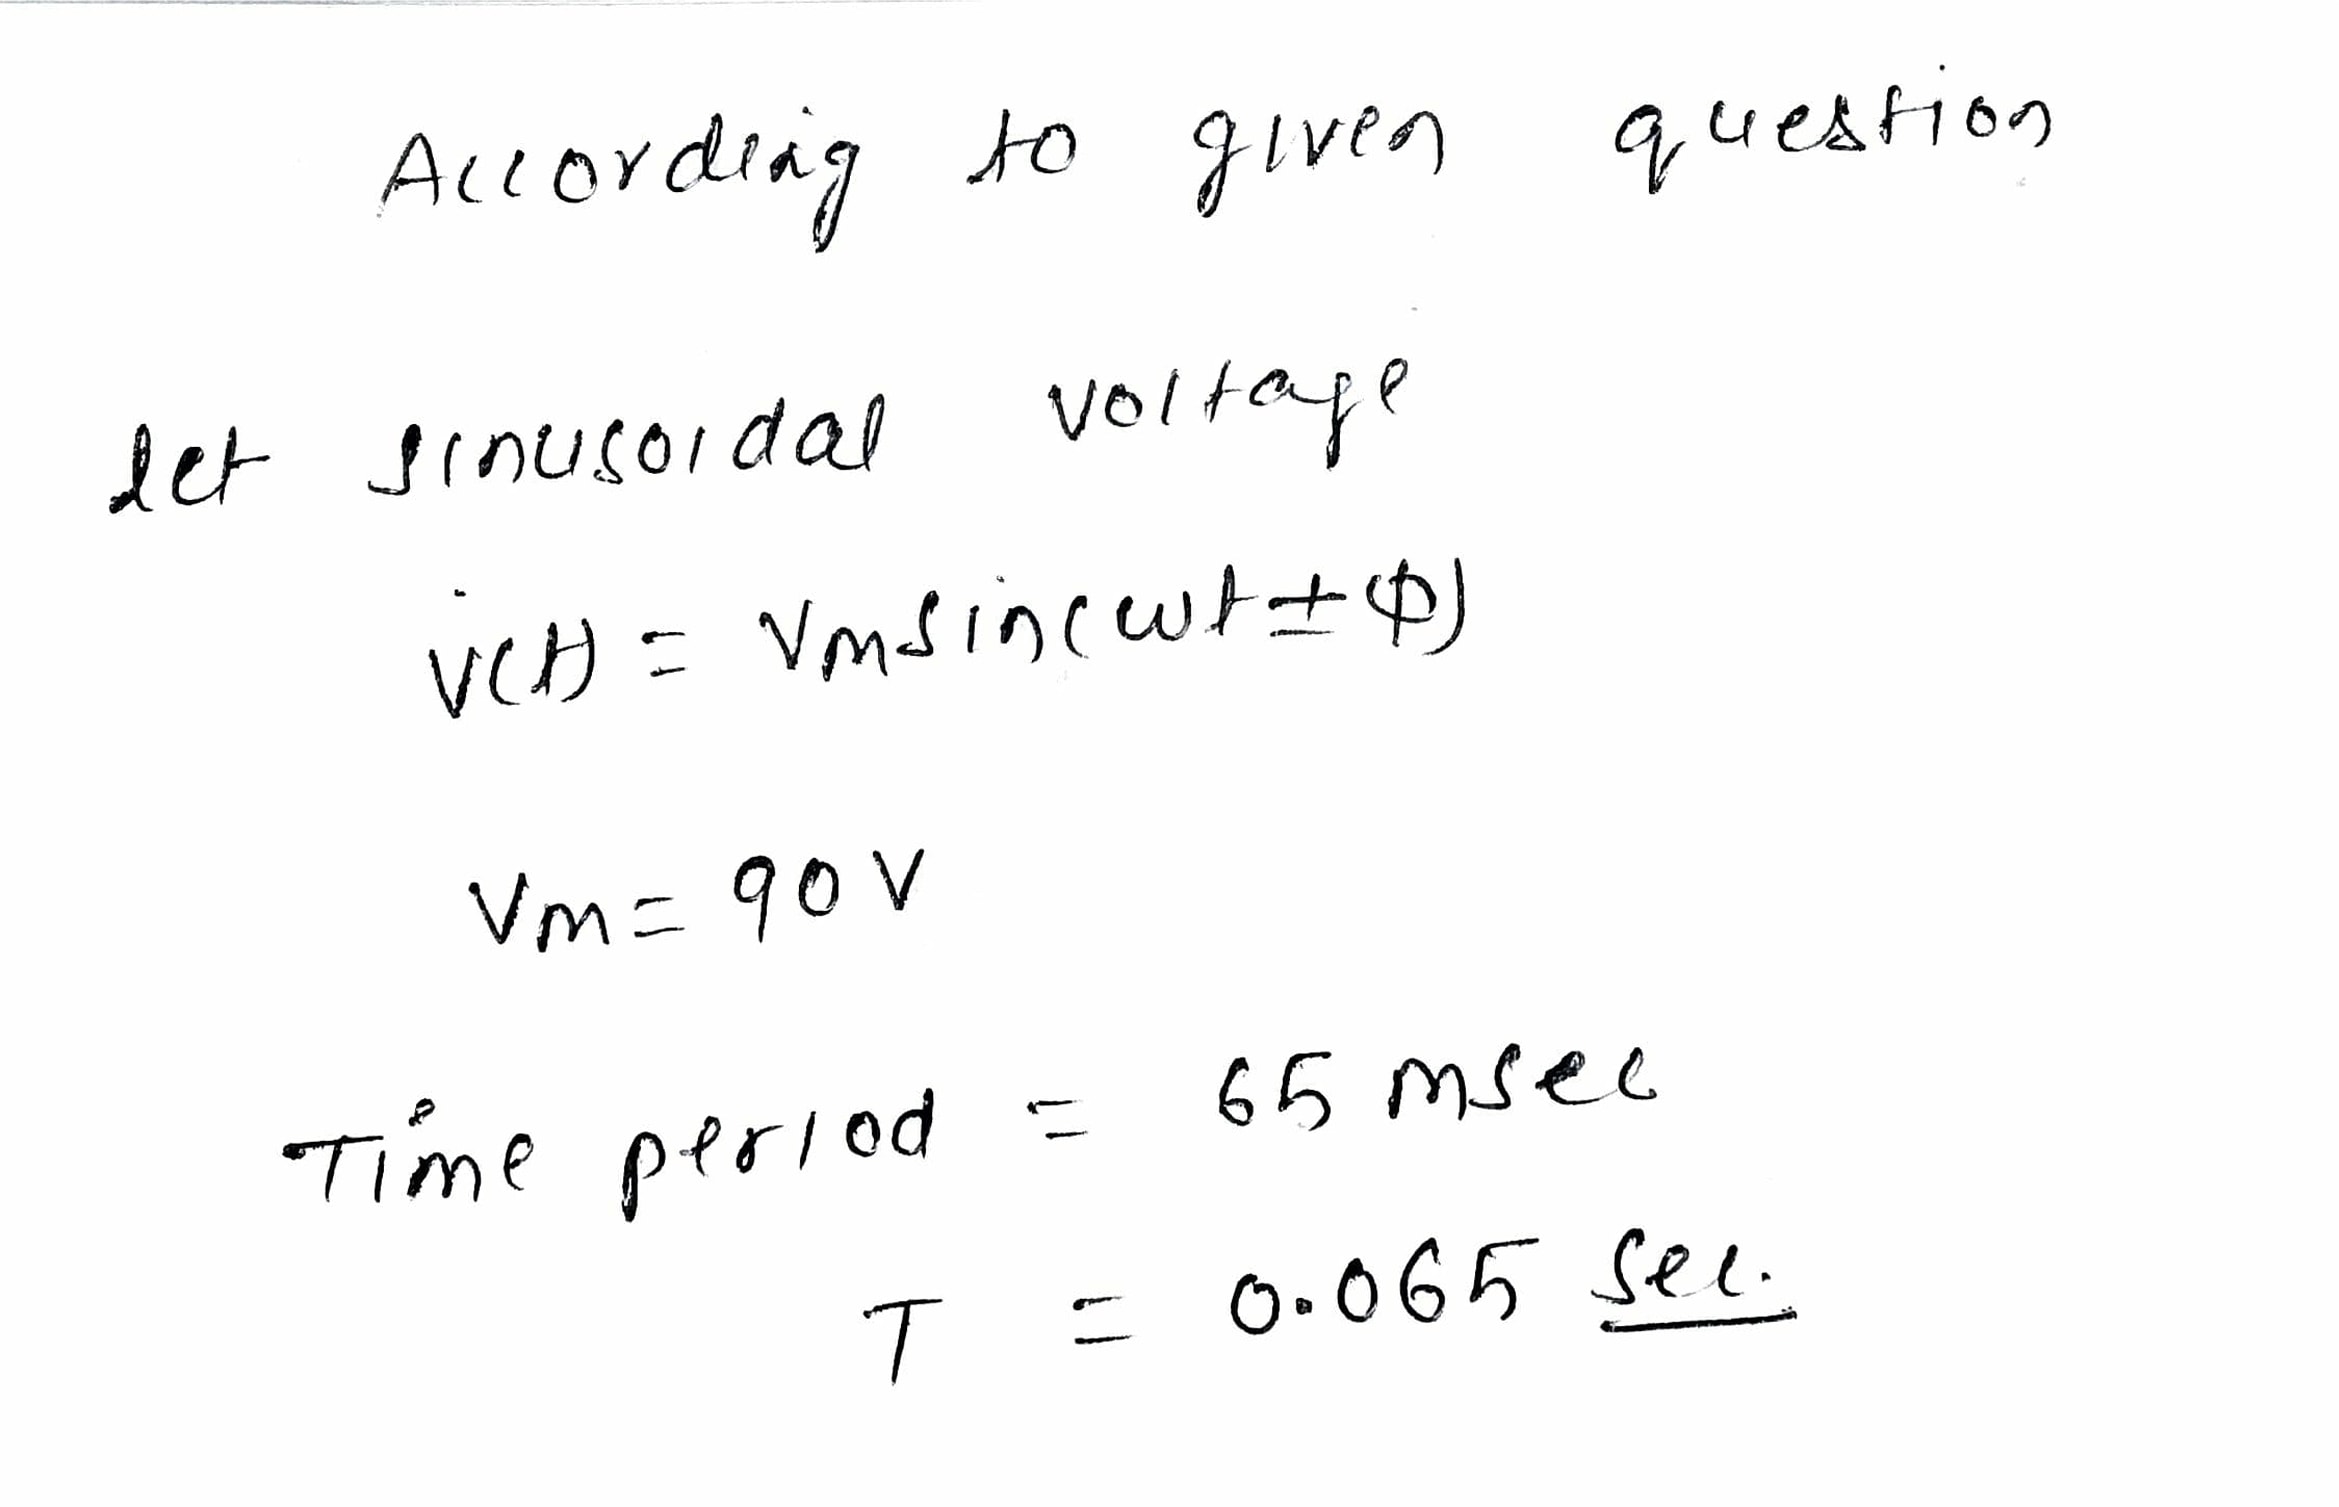 According to given question
let sinusoidal voltage
v(t) = Vmsin(wt±φ)
Vm = 90 V
Time period = 65 msec
T = 0.065 sec.